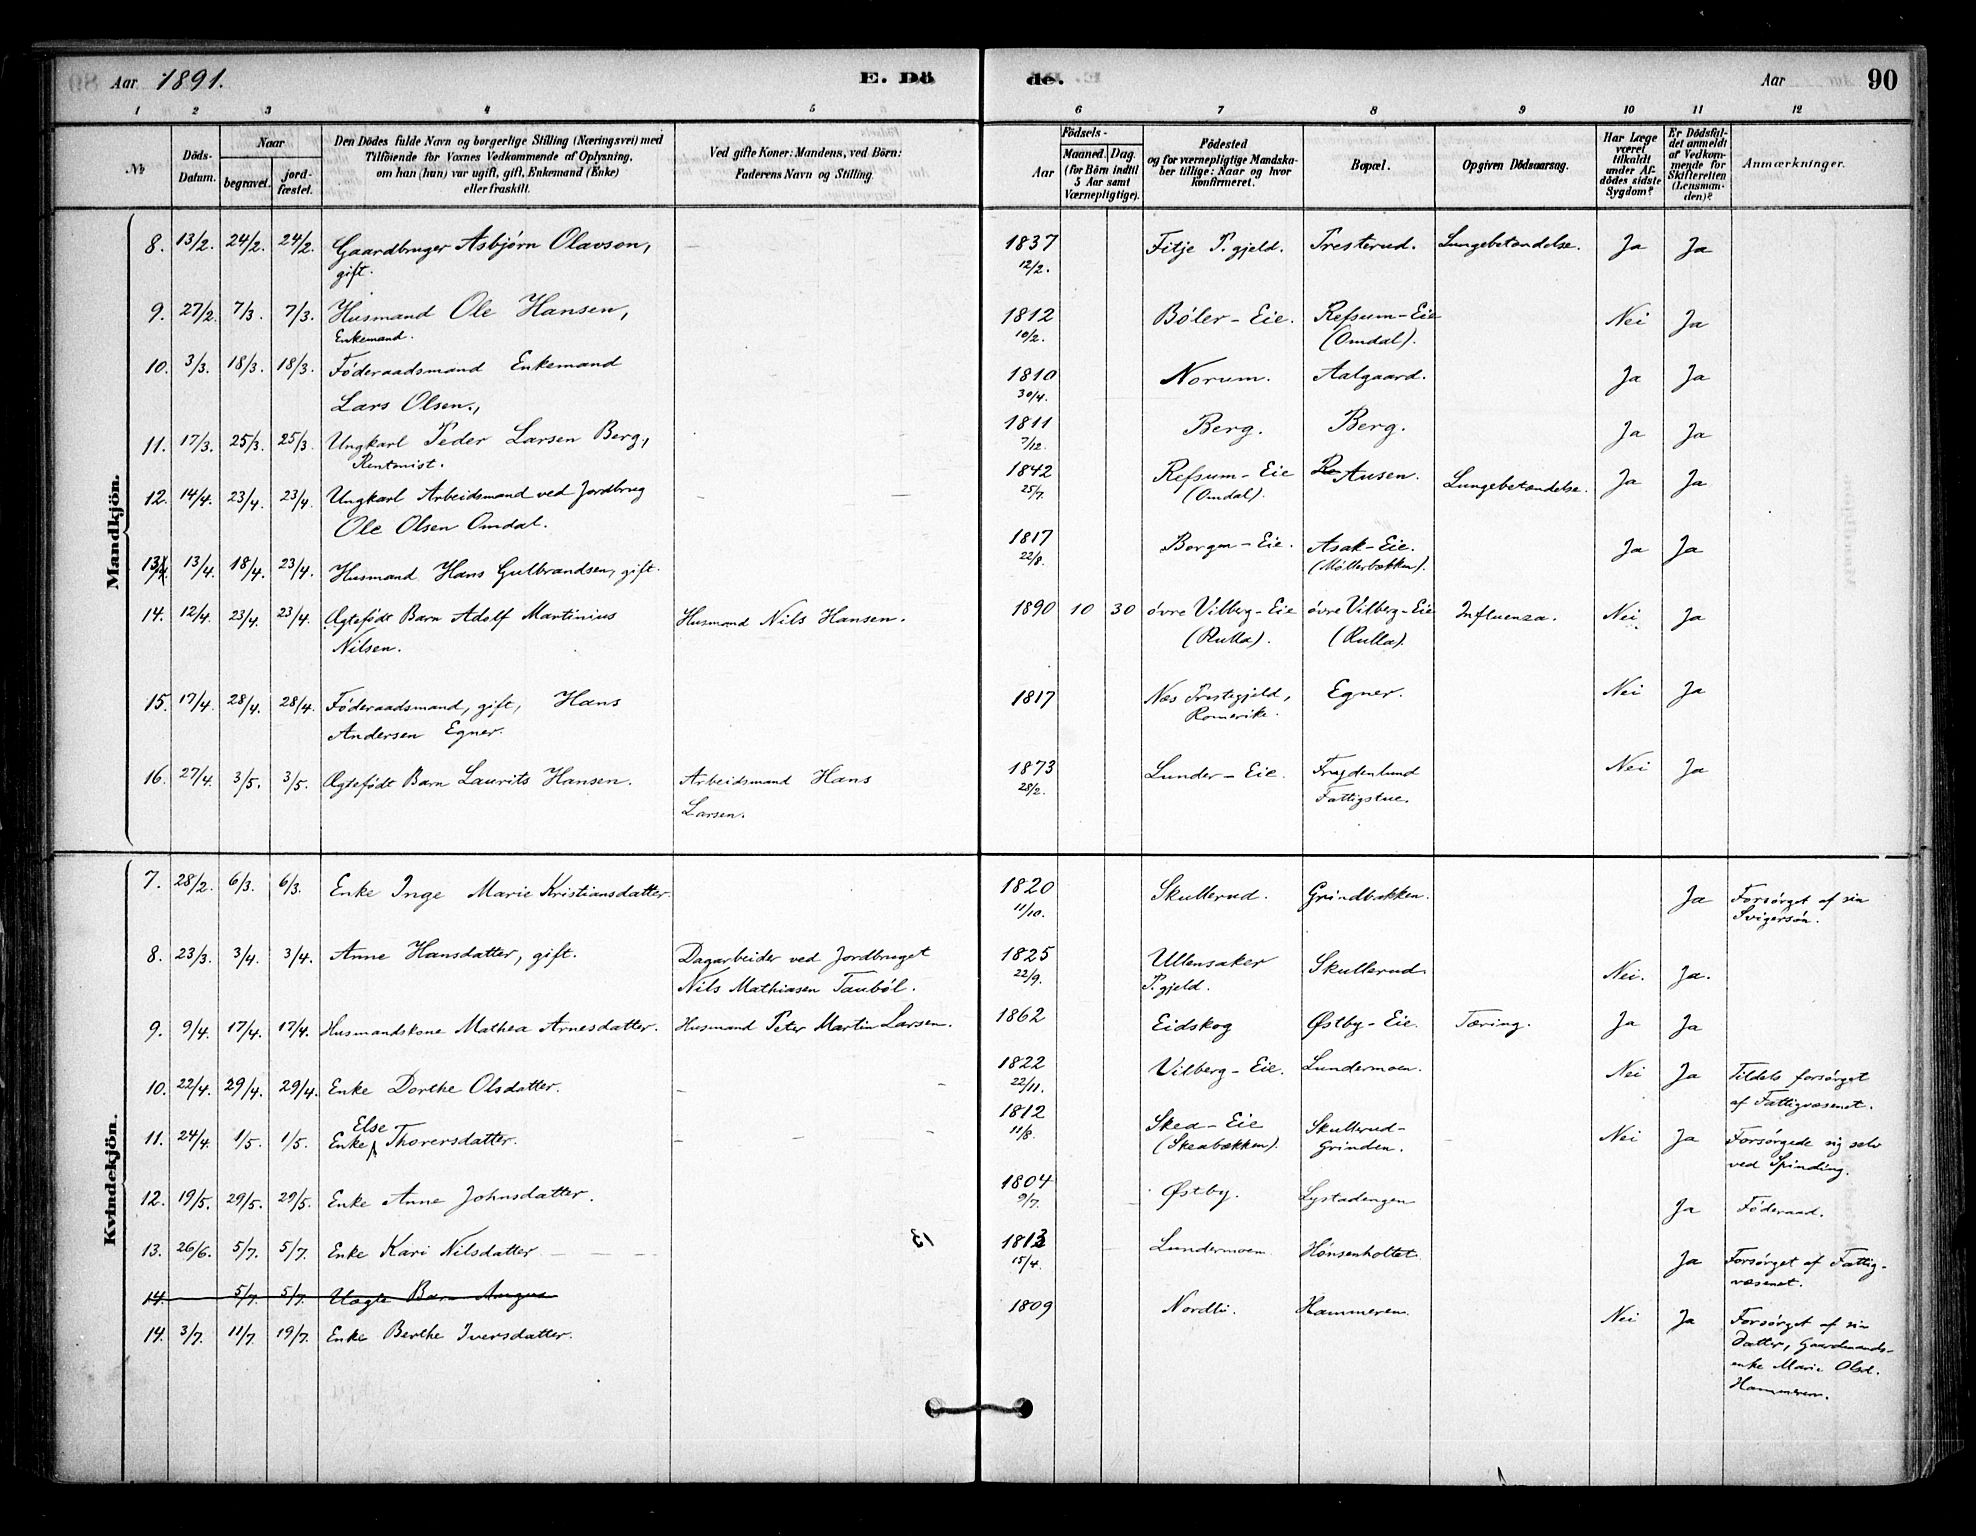 Aar 1891.
E. Dö
de.
Aar
90
1 2 3 4 5 6 7 8 9 10 11 12
No
Döds-Datum.
Naar
begravet.
jordfæstet.
Den Dödes fulde Navn og borgerlige Stilling (Næringsvei) med
Tilföiende for Voxnes Vedkommende af Oplysning,
om han (hun) var ugift, gift, Enkemand (Enke)
eller fraskilt.
Ved gifte Koner: Mandens, ved Börn:
Faderens Navn og Stilling.
Födsels-
Aar
Maaned. Dag.
(for Börn indtil
5 Aar samt
Værnepligtige).
Födested
og for værnepligtige Mandska-
ber tillige: Naar og hvor
konfirmeret.
Bopæl.
Opgiven Dödsaarsag.
Har Læge
været
tilkaldt
under Af-
dödes sidste
Sygdom?
Er Dödsfal-
det anmeldt
af Vedkom-
mende for
Skifteretten
(Lensman-
den)?
Anmærkninger.
Mandkjön.
8. 13/2. 24/2. 24/2. Gaardbruger Asbjørn Olavson, — 1837 Fitje P.gjeld. Tresterud. Lungebetændelse. Ja Ja
gift. 12/2.
9. 27/2. 7/3. 7/3. Husmand Ole Hansen, 1812 Bøler-Eie. Refsum-Eie Nei Ja
Enkemand. 10/2. (Omdal).
10. 3/3. 18/3. 18/3. Föderaadsmand Enkemand 1810 Norum. Aalgaard. Ja Ja
Lars Olsen., 30/4.
11. 17/3. 25/3. 25/3. Ungkarl Peder Larsen Berg, 1811 Berg. Berg. Ja Ja
Rentenist. 7/12.
12. 14/4. 23/4. 23/4. Ungkarl Arbeidsmand ved Jordbrug — — 1842 Refsum-Eie Re Ausen. Lungebetændelse. Ja Ja
Ole Olsen Omdal. 25/7. (Omdal).
13 13/4. 18/4. 23/4. Husmand Hans Gulbrandsen, gift. 1817 Borgen-Eie. Asak-Eie. Ja Ja
22/8. (Møllerbækken).
14. 12/4. 23/4. 23/4. Ægtefödt Barn Adolf Martinius Husmand Nils Hansen. 1890 10 30 øvre Vilberg-Eie øvre Vilberg-Eie Influenza. Nei. Ja
Nilsen. (Rulla). (Rulla).
15. 17/4. 28/4. 28/4. Föderaadsmand, gift, Hans 1817 Næs Prestegjeld, Egner. Nei Ja
Andersen Egner. Romerike.
16. 27/4. 3/5. 3/5. Ægtefödt Barn Laurits Hansen. Arbeidsmand Hans 1873 Lunder-Eie. Frydenlund Nei Ja
Larsen. 28/2. Fattigstue.
Kvindekjön.
7. 28/2. 6/3. 6/3. Enke Inge Marie Kristiansdatter. 1820 Skullerud. Grindbækken. Ja Forsørget af sin
11/10. Svigersøn.
8. 23/3. 3/4. 3/4. Anne Hansdatter, gift. Dagarbeider ved Jordbruget 1825 Ullensaker Skullerud. Nei. Ja.
Nils Mathiasen Tauböl. 22/9. P.gjeld.
9. 9/4. 17/4. 17/4. Husmandskone Mathea Arnesdatter. Husmand Peter Martin Larsen. 1862 Eidskog Østby-Eie. Tæring. Ja Ja
10. 22/4. 29/4. 29/4. Enke Dorthe Olsdatter. — — 1822 Vilberg-Eie. Lundermoen. Nei Ja Tildels forsørget
22/11. af Fattigvæsenet.
11. 24/4. 1/5. 1/5. Enke Else Thorersdatter. — — — 1812 Skea-Eie Skullerud- Nei Ja Forsørgede sig selv
11/8. (Skeabækken). Grinden. ved Spinding.
12. 19/5. 29/5. 29/5. Enke Anne Johnsdatter. 1804 Østby. Lystadengen Ja Föderaad.
9/7.
13. 26/6. 5/7. 5/7. Enke Kari Nilsdatter — — — 13 1813 Lundermoen Hønsenholtet. Ja Forsørget af Fattig-
15/4. væsenet.
14. 5/7. 5/7. Uægte Barn
14. 3/7. 11/7. 19/7. Enke Berthe Iversdatter. 1809 Nordli. Hammeren. Nei Ja Forsørget af sin
Datter, Gaardmands-
enke Marie Olsd.
Hammeren.